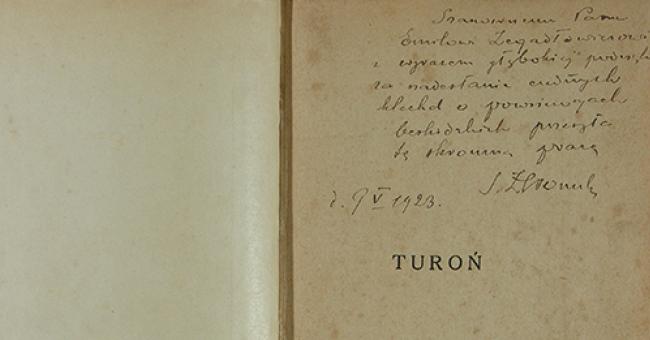 Szanownemu Panu
Emilowi Zegadłowiczowi
z wyrazem głębokiej podzięki
za nadesłanie cudnych
klechd o powsinogach
beskidzkich przesyła
tę skromną pracę
S. Żeromski
d. 9 V 1923.
TUROŃ